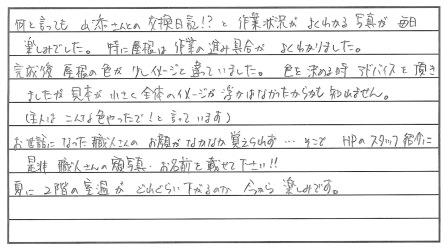 何と言っても 山添さんとの 交換日記!? と 作業状況が よくわかる 写真が 毎日
楽しみでした。 特に屋根は 作業の 進み具合が よくわかりました。
完成後 屋根の色が 少しイメージと 違っていました。 色を決める時 アドバイスを 頂き
ましたが 見本が 小さく 全体のイメージが 浮かばなかったからかも 知れません。
(主人は こんな色やったで! と言っています)
お世話になった 職人さんの お顔が なかなか 覚えられず… そこで HPのスタッフ紹介に
是非 職人さんの 顔写真・お名前を 載せて下さい!!
夏に 2階の室温が どれぐらい 下がるのか 今から 楽しみです。